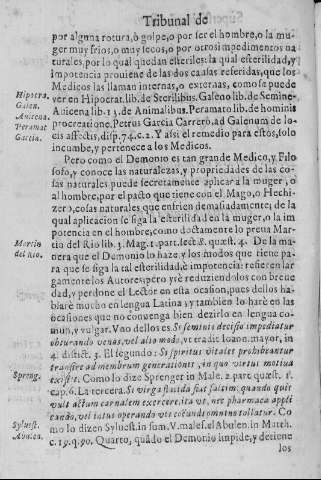 Tribunal de
por alguna rotura, ò golpe, o por ser el hombre, o la mu
ger muy frios, o muy secos, o por otros impedimentos na
turales, por lo qual quedan esteriles: la qual esterilidad, y
impotencia proviene de las dos causas referidas, que los
Medicos las llaman internas, o externas, como se puede
ver en Hipocrat. lib. de Sterilibus. Galeno lib. de Semine.
Avicena lib. 15. de Animalibus. Peramato lib. de hominis
procreatione. Petrus Garcia Carrero, ad Galenum de lo-
cis affectis, disp. 74. c. 2. Y assi el remedio para estos, solo
incumbe, y pertenece a los Medicos.
Hipocra.
Galen.
Auicena.
Peramat
Garcia.
Pero como el Demonio es tan grande Medico, y Filo
sofo, y conoce las naturalezas, y propriedades de las co-
sas naturales puede secretamente aplicar a la muger, ò
al hombre, por el pacto que tiene con el Mago, o Hechi-
zero, cosas naturales que enfrien demasiadamente; de la
qual aplicacion se siga la esterilidad en la muger, o la im
potencia en el hombre, como doctamente lo prueva Mar-
tin del Rio lib. 3. Mag. 1. part. sect. 8. quæst. 4. De la ma-
nera que el Demonio lo haze, y los modos que tiene pa-
ra que se siga la tal esterilidad, è impotencia: refieren lar
gamente los Autores: pero yo reduziendolos con breve
dad, y perdone el Lector en esta ocasion, pues dellos ha-
blarè mucho en lengua Latina, y tambien lo harè en las
ocasiones que no convenga bien dezirlo en lengua co-
mun, y vulgar. Vno dellos es. Si seminis decisio impediatur
obturando venas, vel alio modo, vt tradit Ioann. mayor, in
4. distict. 3. El segundo: Si spiritus vitales prohibeantur
transire ad membrum generationis, in quo virtus motiua
existit. Como lo dize Sprenger in Male. 2. part. quæst. 1.
cap. 6. La tercera.
Martin
del Rio.
Spreng.
Co
mo lo dizen Sylvest. in som. V. malef. el Abulen. in Matth.
c. 19. q. 90. Quarto, quãdo el Demonio impide, y detiene
los
Syluest.